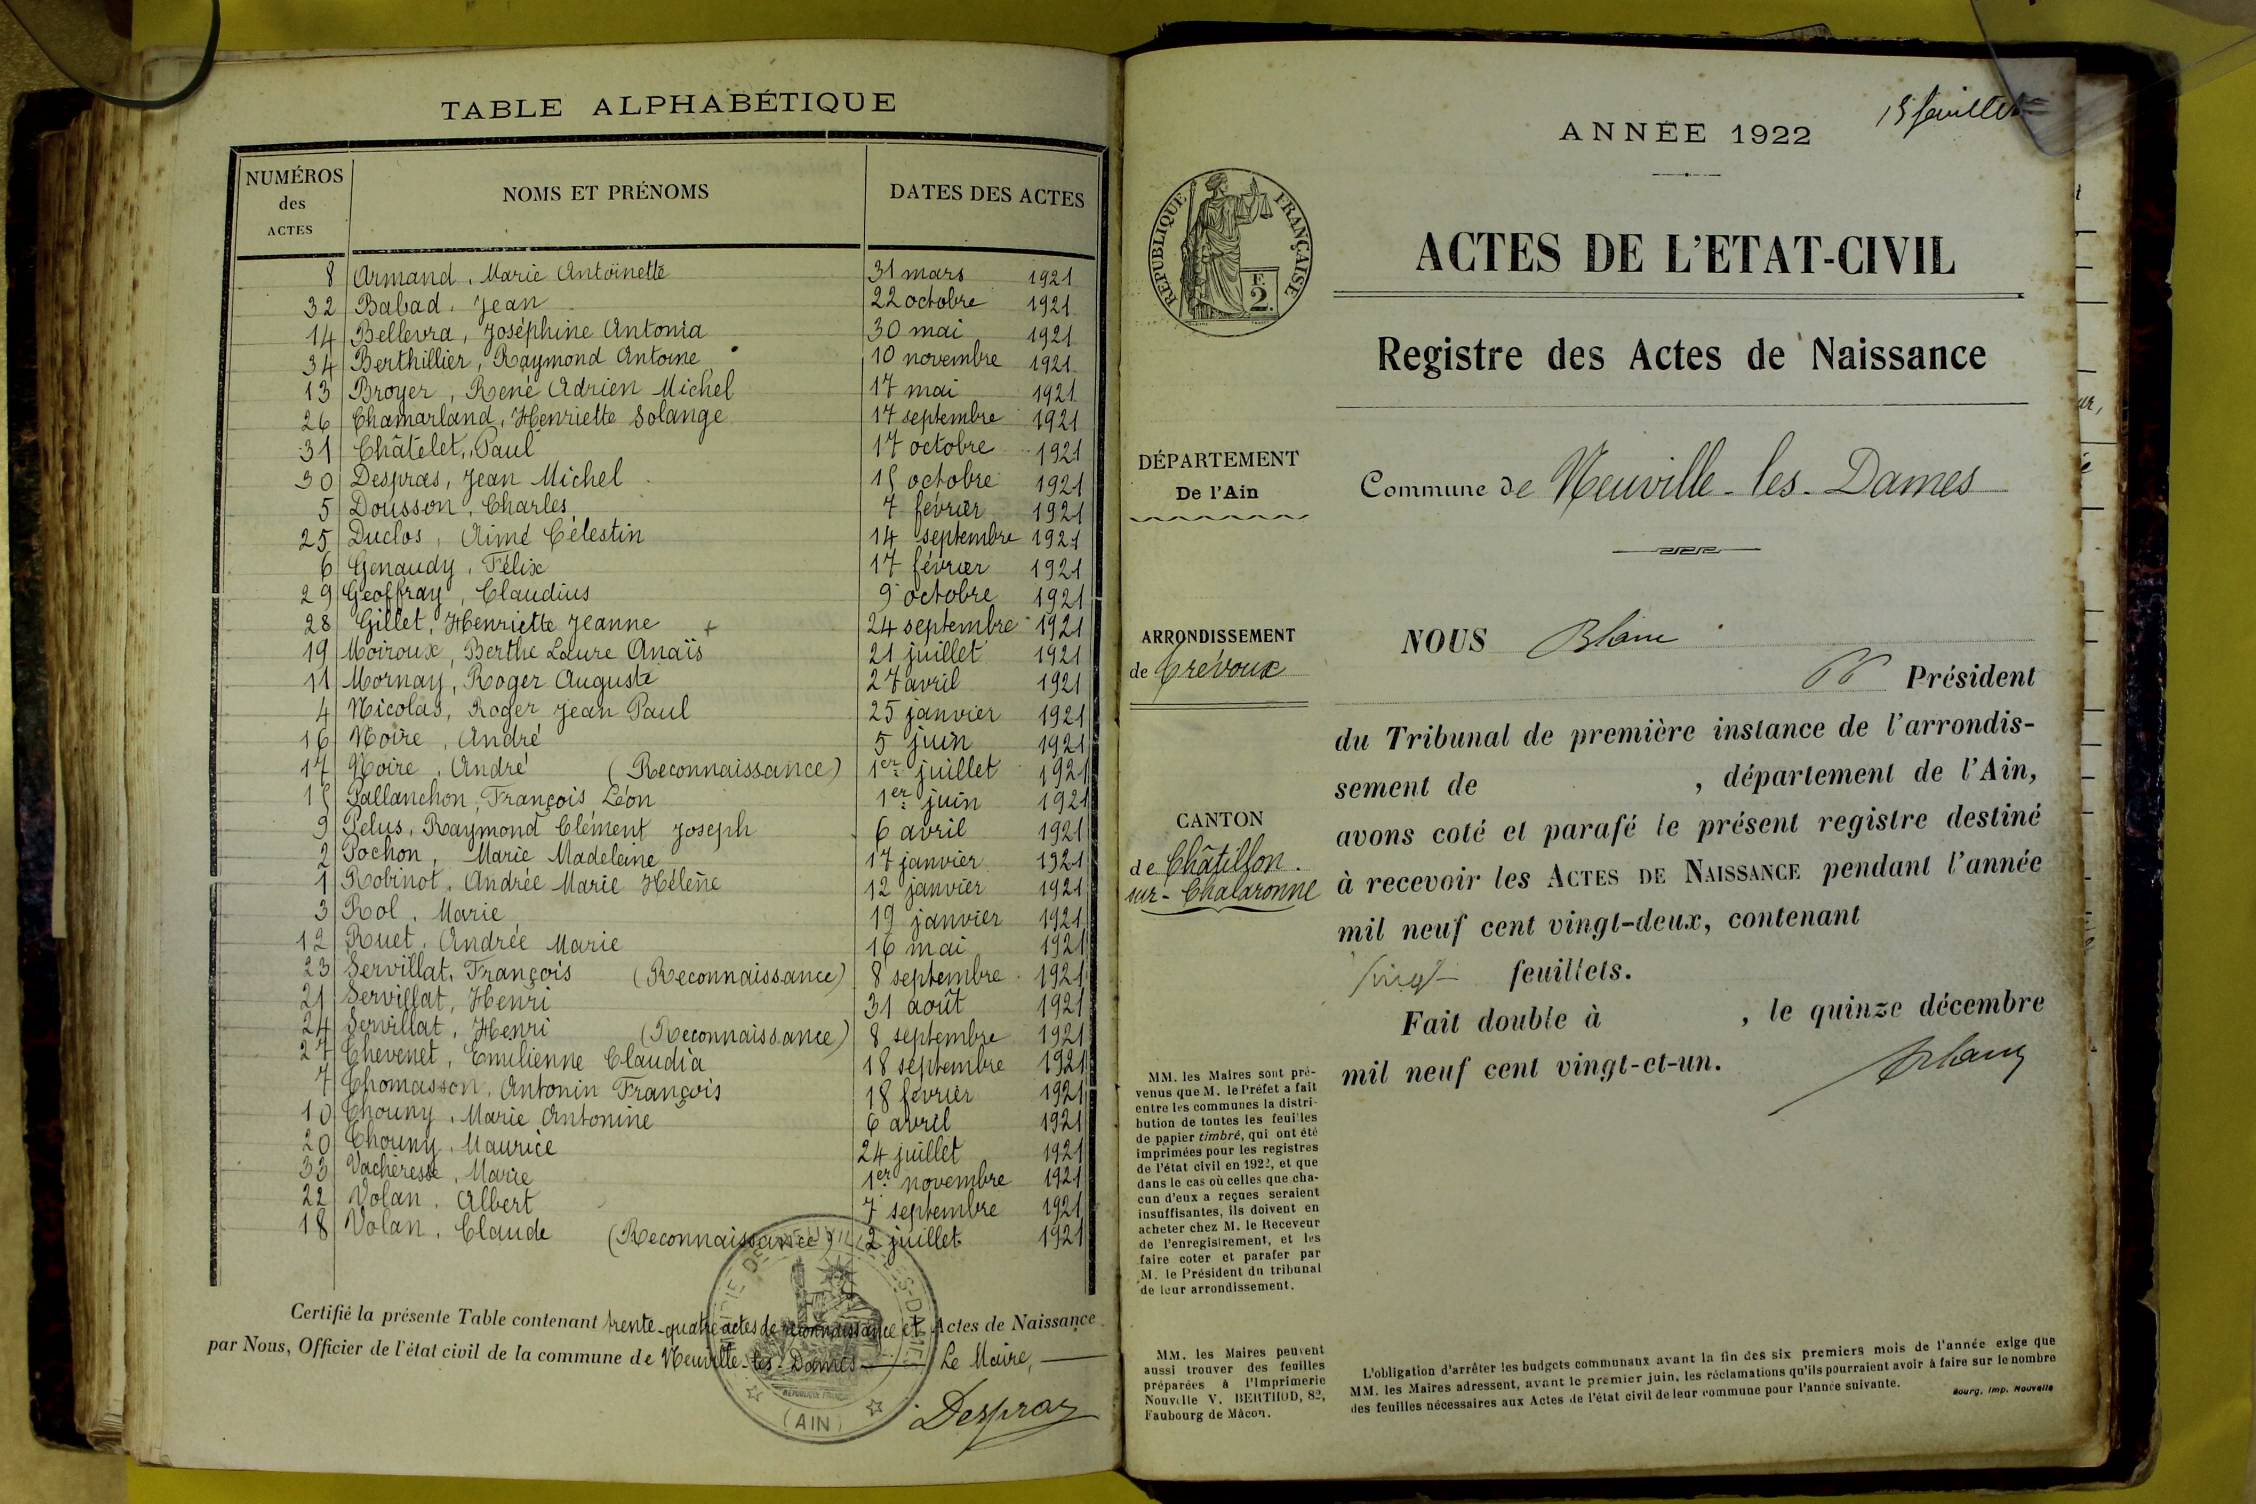 TABLE ALPHABÉTIQUE
NUMÉROS des ACTES NOMS ET PRÉNOMS DATES DES ACTES
8 Armand, Marie Antoinette 31 mars 1921
32 Babad, Jean 22 octobre 1921
14 Bellevra, Joséphine Antonia 30 mai 1921
34 Berthillier, Raymond Antoine 10 novembre 1921
13 Broyer, René Adrien Michel 17 mai 1921
26 Chamarland, Henriette Solange 17 septembre 1921
31 Châtelet, Paul 17 octobre 1921
30 Despras, Jean Michel 15 octobre 1921
5 Dousson, Charles 7 février 1921
25 Duclos, Aimé Célestin 14 septembre 1921
6 Genaudy, Félix 17 février 1921
29 Geoffray, Claudius 9 octobre 1921
28 Gillet, Henriette Jeanne + 24 septembre 1921
19 Moiroux, Berthe Laure Anaïs 21 juillet 1921
11 Mornay, Roger Auguste 27 avril 1921
4 Nicolas, Roger Jean Paul 25 janvier 1921
16 Noire, André 5 juin 1921
17 Noire, André (Reconnaissance) 1er juillet 1921
15 Pallanchon, François Léon 1er juin 1921
9 Pelus, Raymond Clément Joseph 6 avril 1921
2 Pochon, Marie Madeleine 17 janvier 1921
1 Robinot, Andrée Marie Hélène 12 janvier 1921
3 Rol, Marie 19 janvier 1921
12 Ruet, Andrée Marie 16 mai 1921
23 Servillat, François (Reconnaissance) 8 septembre 1921
21 Servillat, Henri 31 août 1921
24 Servillat, Henri (Reconnaissance) 8 septembre 1921
27 Thevenet, Emilienne Claudia 18 septembre 1921
7 Thomasson, Antonin François 18 février 1921
10 Thouny, Marie Antonine 6 avril 1921
20 Thouny, Maurice 24 juillet 1921
33 Vacheresse, Marie 1er novembre 1921
22 Volan, Albert 7 septembre 1921
18 Volan, Claude (Reconnaissance) 2 juillet 1921
Certifié la présente Table contenant trente-quatre actes de reconnaissance et Actes de Naissance
par Nous, Officier de l'état civil de la commune de Neuville-les-Dames Le Maire,
MAIRIE DE NEUVILLE-LES-DAMES
RÉPUBLIQUE FRANÇAISE
(AIN)
Despraz
15 feuillets
ANNÉE 1922
RÉPUBLIQUE FRANÇAISE
F.
2.
ACTES DE L'ETAT-CIVIL
Registre des Actes de Naissance
DÉPARTEMENT
De l'Ain
Commune de Neuville-les-Dames
ARRONDISSEMENT
de Trévoux
CANTON
de Châtillon-
sur-Chalaronne
NOUS Blanc
Président
du Tribunal de première instance de l'arrondis-
sement de , département de l'Ain,
avons coté et parafé le présent registre destiné
à recevoir les ACTES DE NAISSANCE pendant l'année
mil neuf cent vingt-deux, contenant
vingt feuillets.
Fait double à , le quinze décembre
mil neuf cent vingt-et-un.
Blanc
MM. les Maires sont pré-
venus que M. le Préfet a fait
entre les communes la distri-
bution de toutes les feuilles
de papier timbré, qui ont été
imprimées pour les registres
de l'état civil en 1922, et que
dans le cas où celles que cha-
cun d'eux a reçues seraient
insuffisantes, ils doivent en
acheter chez M. le Receveur
de l'enregistrement, et les
faire coter et parafer par
M. le Président du tribunal
de leur arrondissement.
MM. les Maires peuvent
aussi trouver des feuilles
préparées à l'Imprimerie
Nouvelle V. BERTHOD, 82,
Faubourg de Mâcon.
L'obligation d'arrêter les budgets communaux avant la fin des six premiers mois de l'année exige que
MM. les Maires adressent, avant le premier juin, les réclamations qu'ils pourraient avoir à faire sur le nombre
des feuilles nécessaires aux Actes de l'état civil de leur commune pour l'année suivante.
Bourg, Imp. Nouvelle